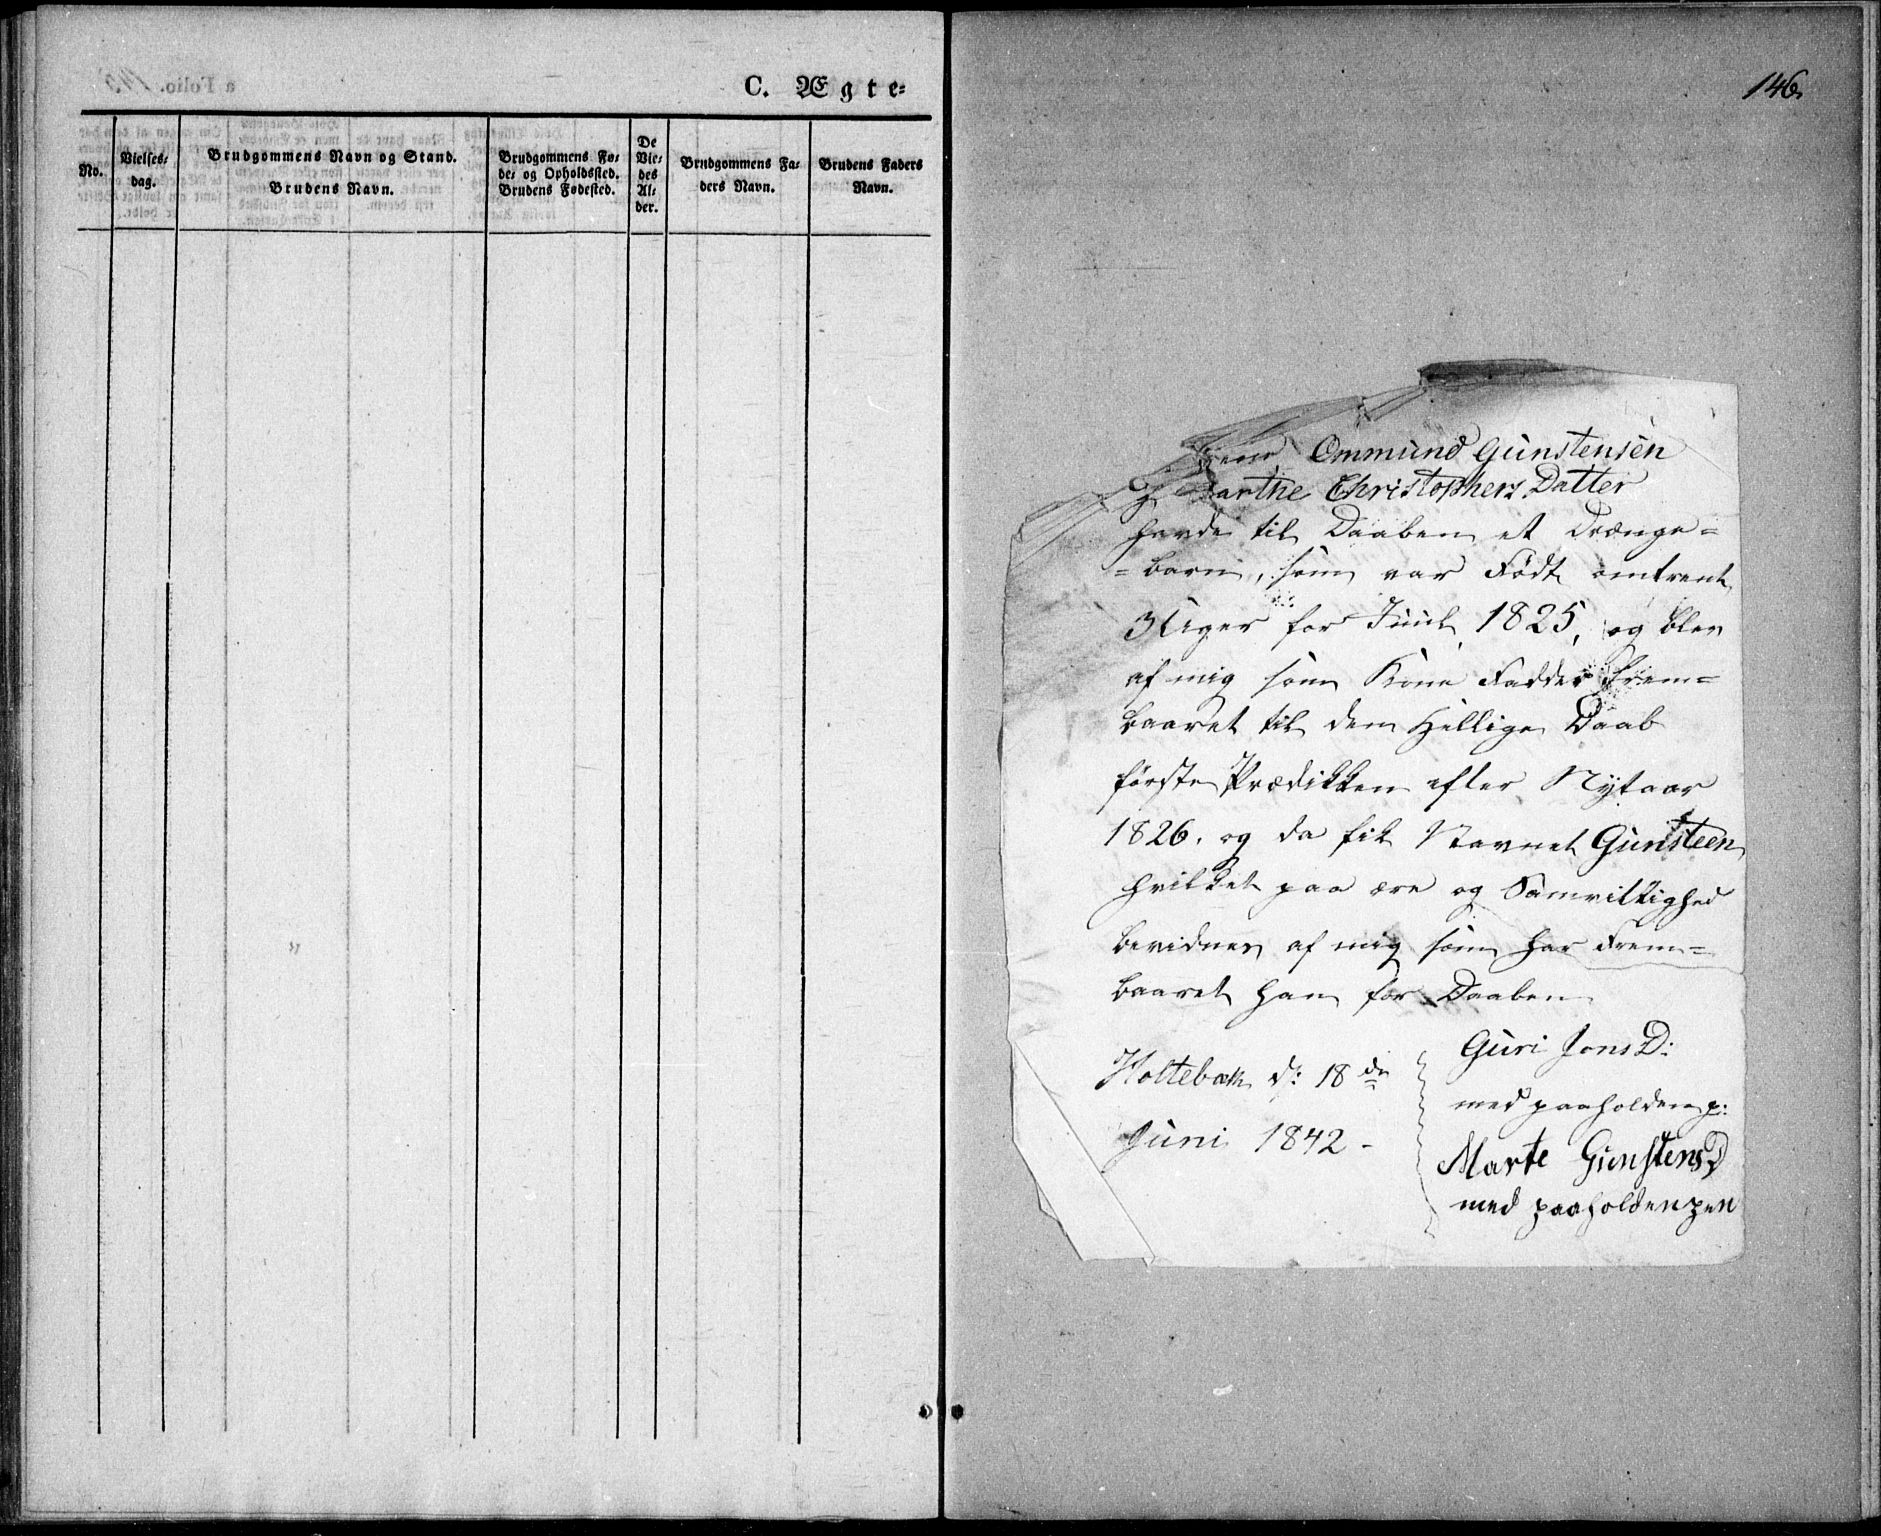 C. Ægte=
No.
Vielses=
dag.
Brudgommens Navn og Stand.
Brudens Navn.
Brudgommens Fø=
de= og Opholdssted.
Brudens Fødested.
De
Vie=
des
Al=
der.
Brudgommens Fa=
ders Navn.
Brudens Faders
Navn.
146.
Ommund Gunstensen
Marthe Christophers Datter
havde til Daaben et Drænge=
=barn, som var Født omtrent
3 Uger for Juul 1825, og blev
af mig som Kone Fadder Frem=
baaret til dem Hellige Daab
første Prædikken efter Nytaar
1826. og da fik Navnet Gunsteen
hvilket paa ære og Samvittighed
bevidnes af mig som har Frem=
baaret ham for Daaben
Holtebæk d: 18de
Juni 1842 -
Guri JonsD:
med paaholden p:
Marte GunstensD
med paaholden pen